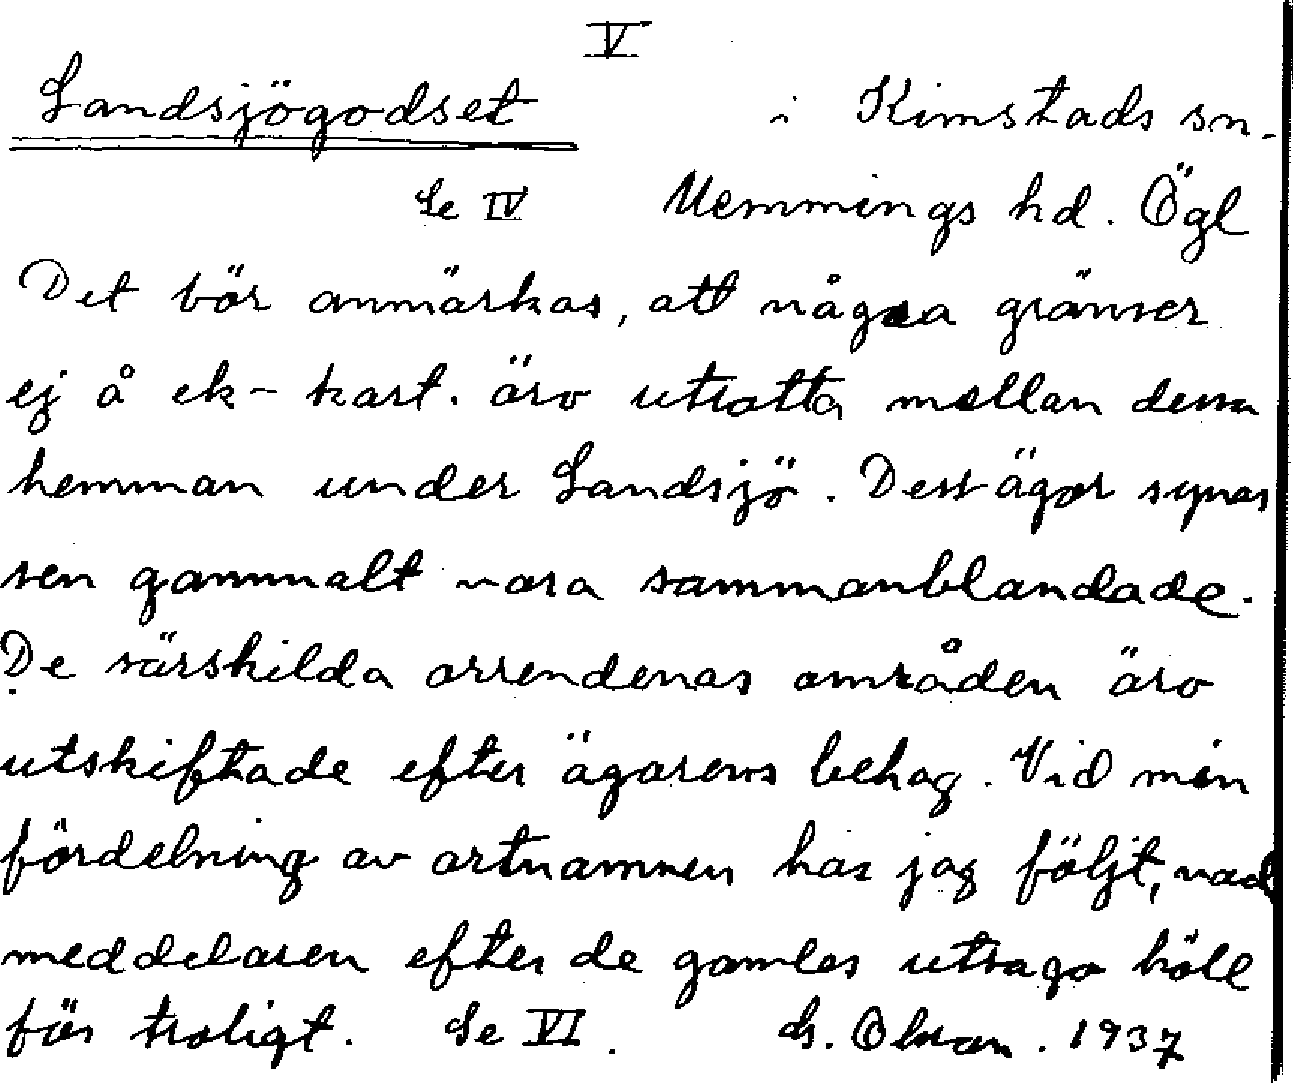 V
Landsjögodset i Kimstads sn.
Se IV Memmings hd. Ögl
Det bör anmärkas, att några gränser
ej å ek-kart. äro utsatta mellan dessa
hemman under Landsjö. Dess ägor synas
sen gammalt vara sammanblandade.
De särskilda arrendenas områden äro
utskiftade efter ägarens behag. Vid min
fördelning av ortnamnen har jag följt, vad
meddelaren efter de gamles utsago höll
för troligt. Se VI. Olsson. 1937